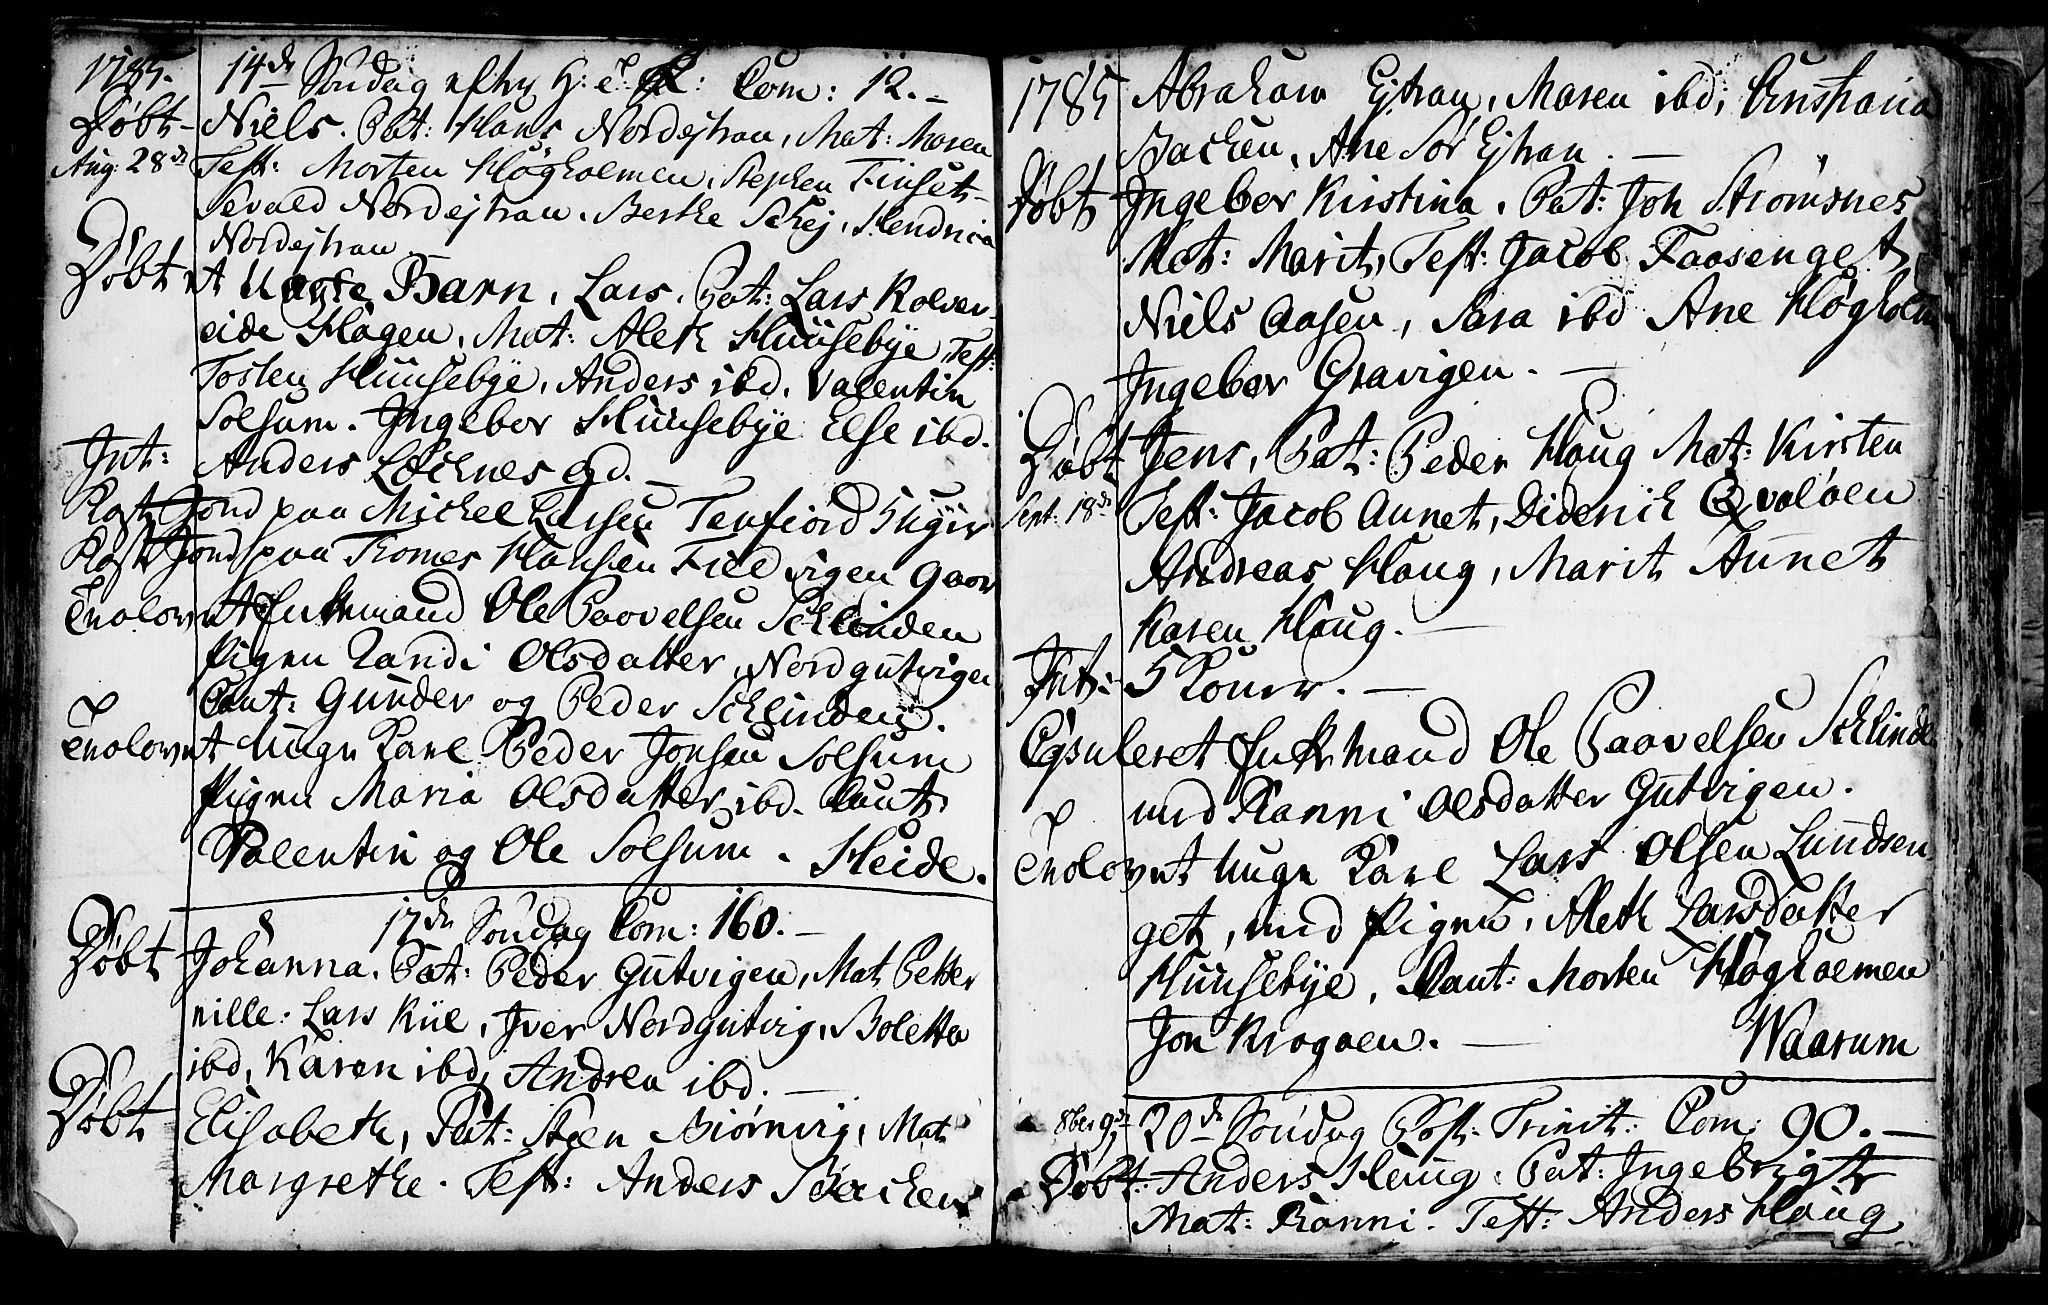 1785. 14de Søndag efter
Com: 12.
Døbt Niels. Pat: Hans Nordejtran, Mat: Maren
Aug: 28de Test: Morten Høgholmen, Stephen Finset
Sevald Nordejtran. Berthe Schej, Hendrica
Nordejtran
Døbt et Uægte Barn, Lars, Pat: Lars Kolver
eide Hagen, Mat: Aleth Huusebye, Test:
Tosten Huusebye, Anders ibd, Valentin
Solsum. Ingebor Huusebye Else ibd.
Int: Anders Lochnes
Kast Jord paa Michel Larsen Tenfiord
Kast Jord paa Thomes Hansen
Trolovet Enkemand Ole Paavelsen Schlinden
Pigen Randi Olsdatter, Nordgutvigen
Caut: Gunder og Peder Schlinden.
Trolovet Unge Karl Peder Jonsen Solsum
Pigen Maria Olsdatter ibd. Caut:
Valentin og Ole Solsum. Heide.
17de Søndag Com: 160.
Døbt Johanna. Pat: Peder Gutvigen, Mat Petter
nille. Lars Kiil, Iver Nordgutvig, Boletta
ibd, Karen ibd, Andrea ibd.
Døbt Elisabeth, Pat: Steen Biørnvig, Mat
Margrethe. Test: Anders Bachen
1785 Abraham Ejtran, Maren ibd, Cirstiania
Bachen, Ane Sør Ejtran.
Døbt Ingebor Kirstina. Pat: Joh Strømsnes
Mat: Marit, Test: Jacob Faasenget
Niels Aasen, Sara ibd Ane Høgholm
Ingebor Gravigen.
Døbt Jens, Pat: Peder Haug Mat: Kirsten
Sept: 18de Test: Jacob Aunet, Diderich Qvaløen
Andreas Haug, Marit Aunet
Karen Haug.
Int: 5 Koner.
Copuleret Enkemand Ole Paavelsen Schlinde
med Ranni Olsdatter Gutvigen.
Trolovet Unge Karl Lars Olsen Lundsen
get, med Pigen, Aleth Larsdatter
Huusebye, Caut: Morten Høgholmen
Jon Krogøen. Waarum
8ber 9de 20de Søndag Post: Trinit: Com: 90.
Døbt: Anders Haug, Pat: Ingebrigt
Mat: Ranni. Test: Anders Haug